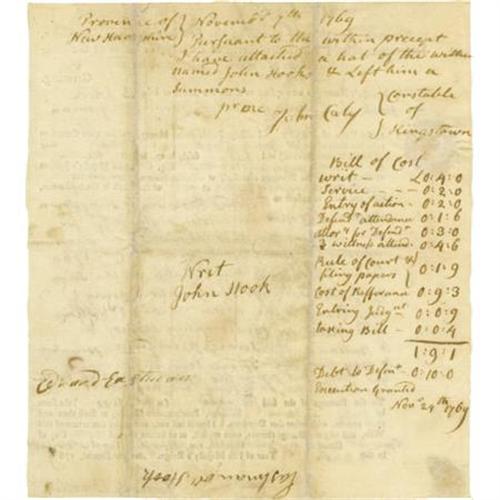 Province of } Novembr 7th 1769
New Hampshire } Pursuant to the within precept
I have attached a hat of the within
named John Hook & Left him a
Summons
pr me John Calf } Constable
of
Kingstown
Bill of Cost
writ - £0:4:0
Service - - - 0:2:0
Entry of action - 0:2:0
Defendts attendance 0:1:6
Attory for Defendt 0:3:0
3 witness attend. 0:4:6
Rule of Court &
filing papers } 0:1:9
Cost of Refferance 0:9:3
Entring Judgnt 0:0:9
taxing Bill - 0:0:4
1:9:1
Debt to Defendt 0:10:0
Execution Granted
Novr 24th 1769
Writ
John Hook
Edward Eastman
Hook